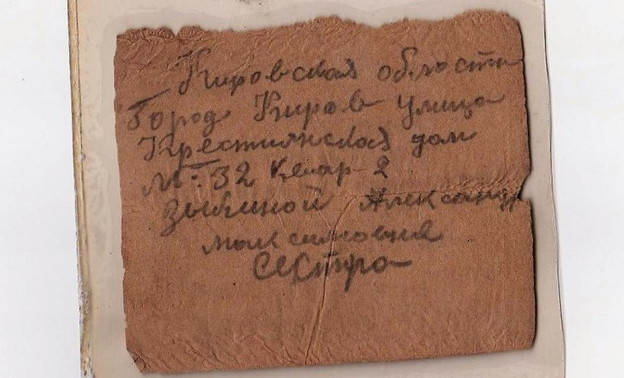 Кировская области
Город Киров улица
Крестиянская дом
№ 32 квар-2
Зыкиной Александр
Максимовне
Сестра